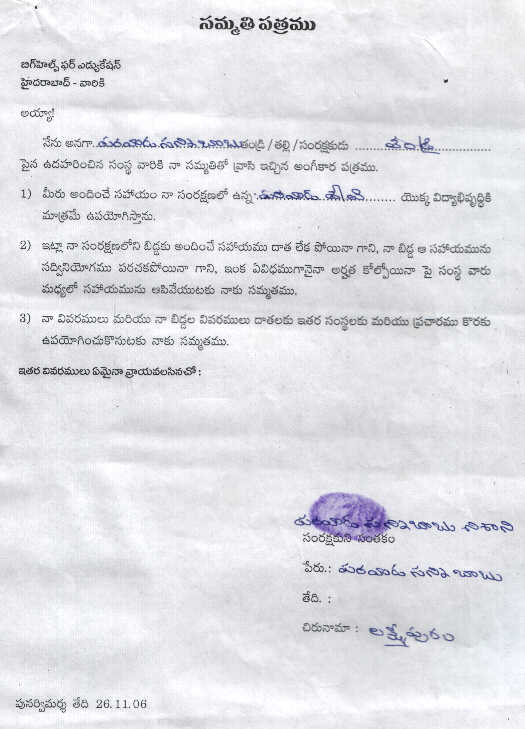 సమ్మతి పత్రము
బిగ్‌హెల్ప్ ఫర్ ఎడ్యుకేషన్
హైదరాబాద్ - వారికి
అయ్యా!
నేను అనగా. బాబు తండ్రి / తల్లి / సంరక్షకుడు .......... తండ్రి ..............
పైన ఉదహరించిన సంస్థ వారికి నా సమ్మతితో వ్రాసి ఇచ్చిన అంగీకార పత్రము.
1) మీరు అందించే సహాయం నా సంరక్షణలో ఉన్న ........ యొక్క విద్యాభివృద్ధికి
మాత్రమే ఉపయోగిస్తాను.
2) ఇట్లా నా సంరక్షణలోని బిడ్డకు అందించే సహాయము దాత లేక పోయినా గాని, నా బిడ్డ ఆ సహాయమును
సద్వినియోగము పరచకపోయినా గాని, ఇంక ఏవిధముగానైనా అర్హత కోల్పోయినా పై సంస్థ వారు
మధ్యలో సహాయమును ఆపివేయుటకు నాకు సమ్మతము.
3) నా వివరములు మరియు నా బిడ్డల వివరములు దాతలకు ఇతర సంస్థలకు మరియు ప్రచారము కొరకు
ఉపయోగించుకొనుటకు నాకు సమ్మతము.
ఇతర వివరములు ఏమైనా వ్రాయవలసినచో :
బాబు నిశాని
సంరక్షకుని సంతకం
పేరు.: బాబు
తేది. :
చిరునామా : లక్ష్మీపురం
పునర్విమర్శ తేది 26.11.06